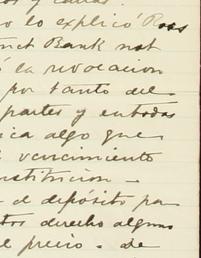 y
lo explicó Ross
trict Bank not
ó la revocacion
por tanto del
partes y en todas
ica algo que
e vencimiento
nstitucion -
el depósito pa
tos derecho alguno
el precio. - de